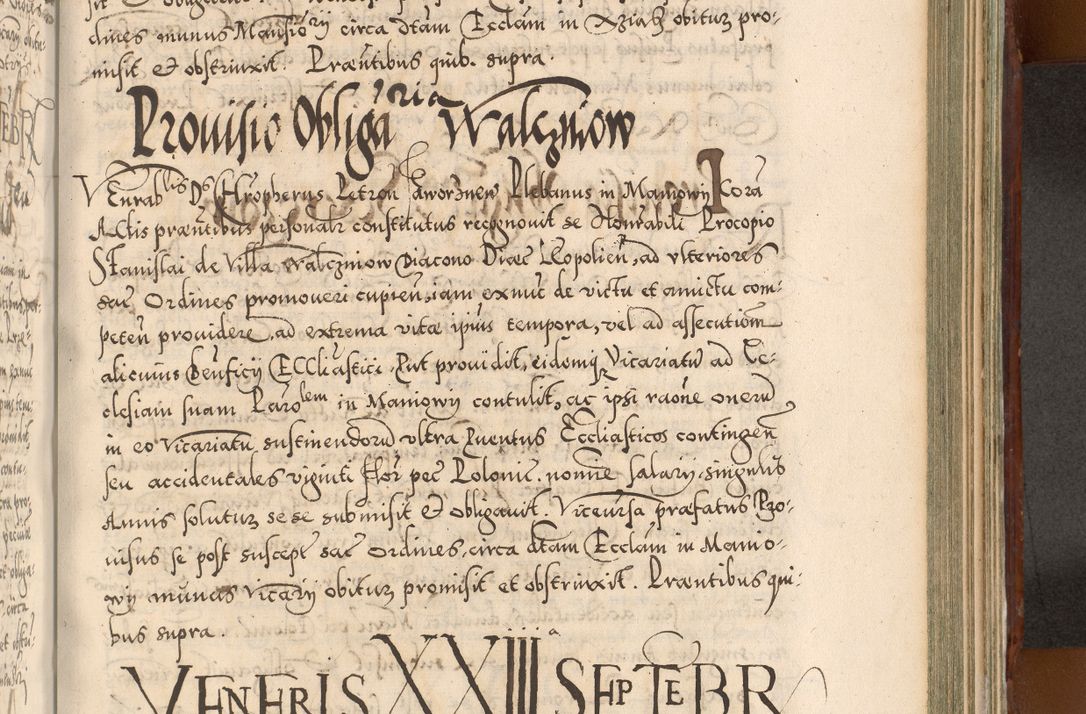 dines munus Mansiory circa dtam Ecclam in Xziaz obitur pro-
misit et obstrinxit. Præntibus quib. supra.
Prouisio Obligaria Walczniow
VEnrablis Ds Xropherus Petrcu Plebanus in Maniowy Cora
Actis præntibus personalr constitutus recognouit se Honrabili Procopio
Stanislai de Villa Walczniow Diacono Diæc Leopolien, ad vlteriores
sac Ordines promoueri cupien, iam exnuc de victu et amictu com-
peten prouidere, ad extrema vitæ ipius tempora, vel ad assecutiom
alicuius Benficij Ecclıastici. Put prouidit, eidemq Vicariatu ad Ec-
clesiam suam Parolem in Maniowy contulit, ac ipsi raone onerum
in eo Vicariatu sustinendoru vltra Puentus Eccliasticos contingen
seu accidentales viginti flor pec Polonic. nomine salary, singulis
Annis solutur sese submisit et obligauit. Viceuersa præfatus Pro-
uisus se post suscept sac ordines, circa dtam Ecclam in Manio-
wy munus vicarij obitur promisit et obstrinxit. Præntibus qui-
bus supra.
VENERIS XXIIIIa SEPTEBR